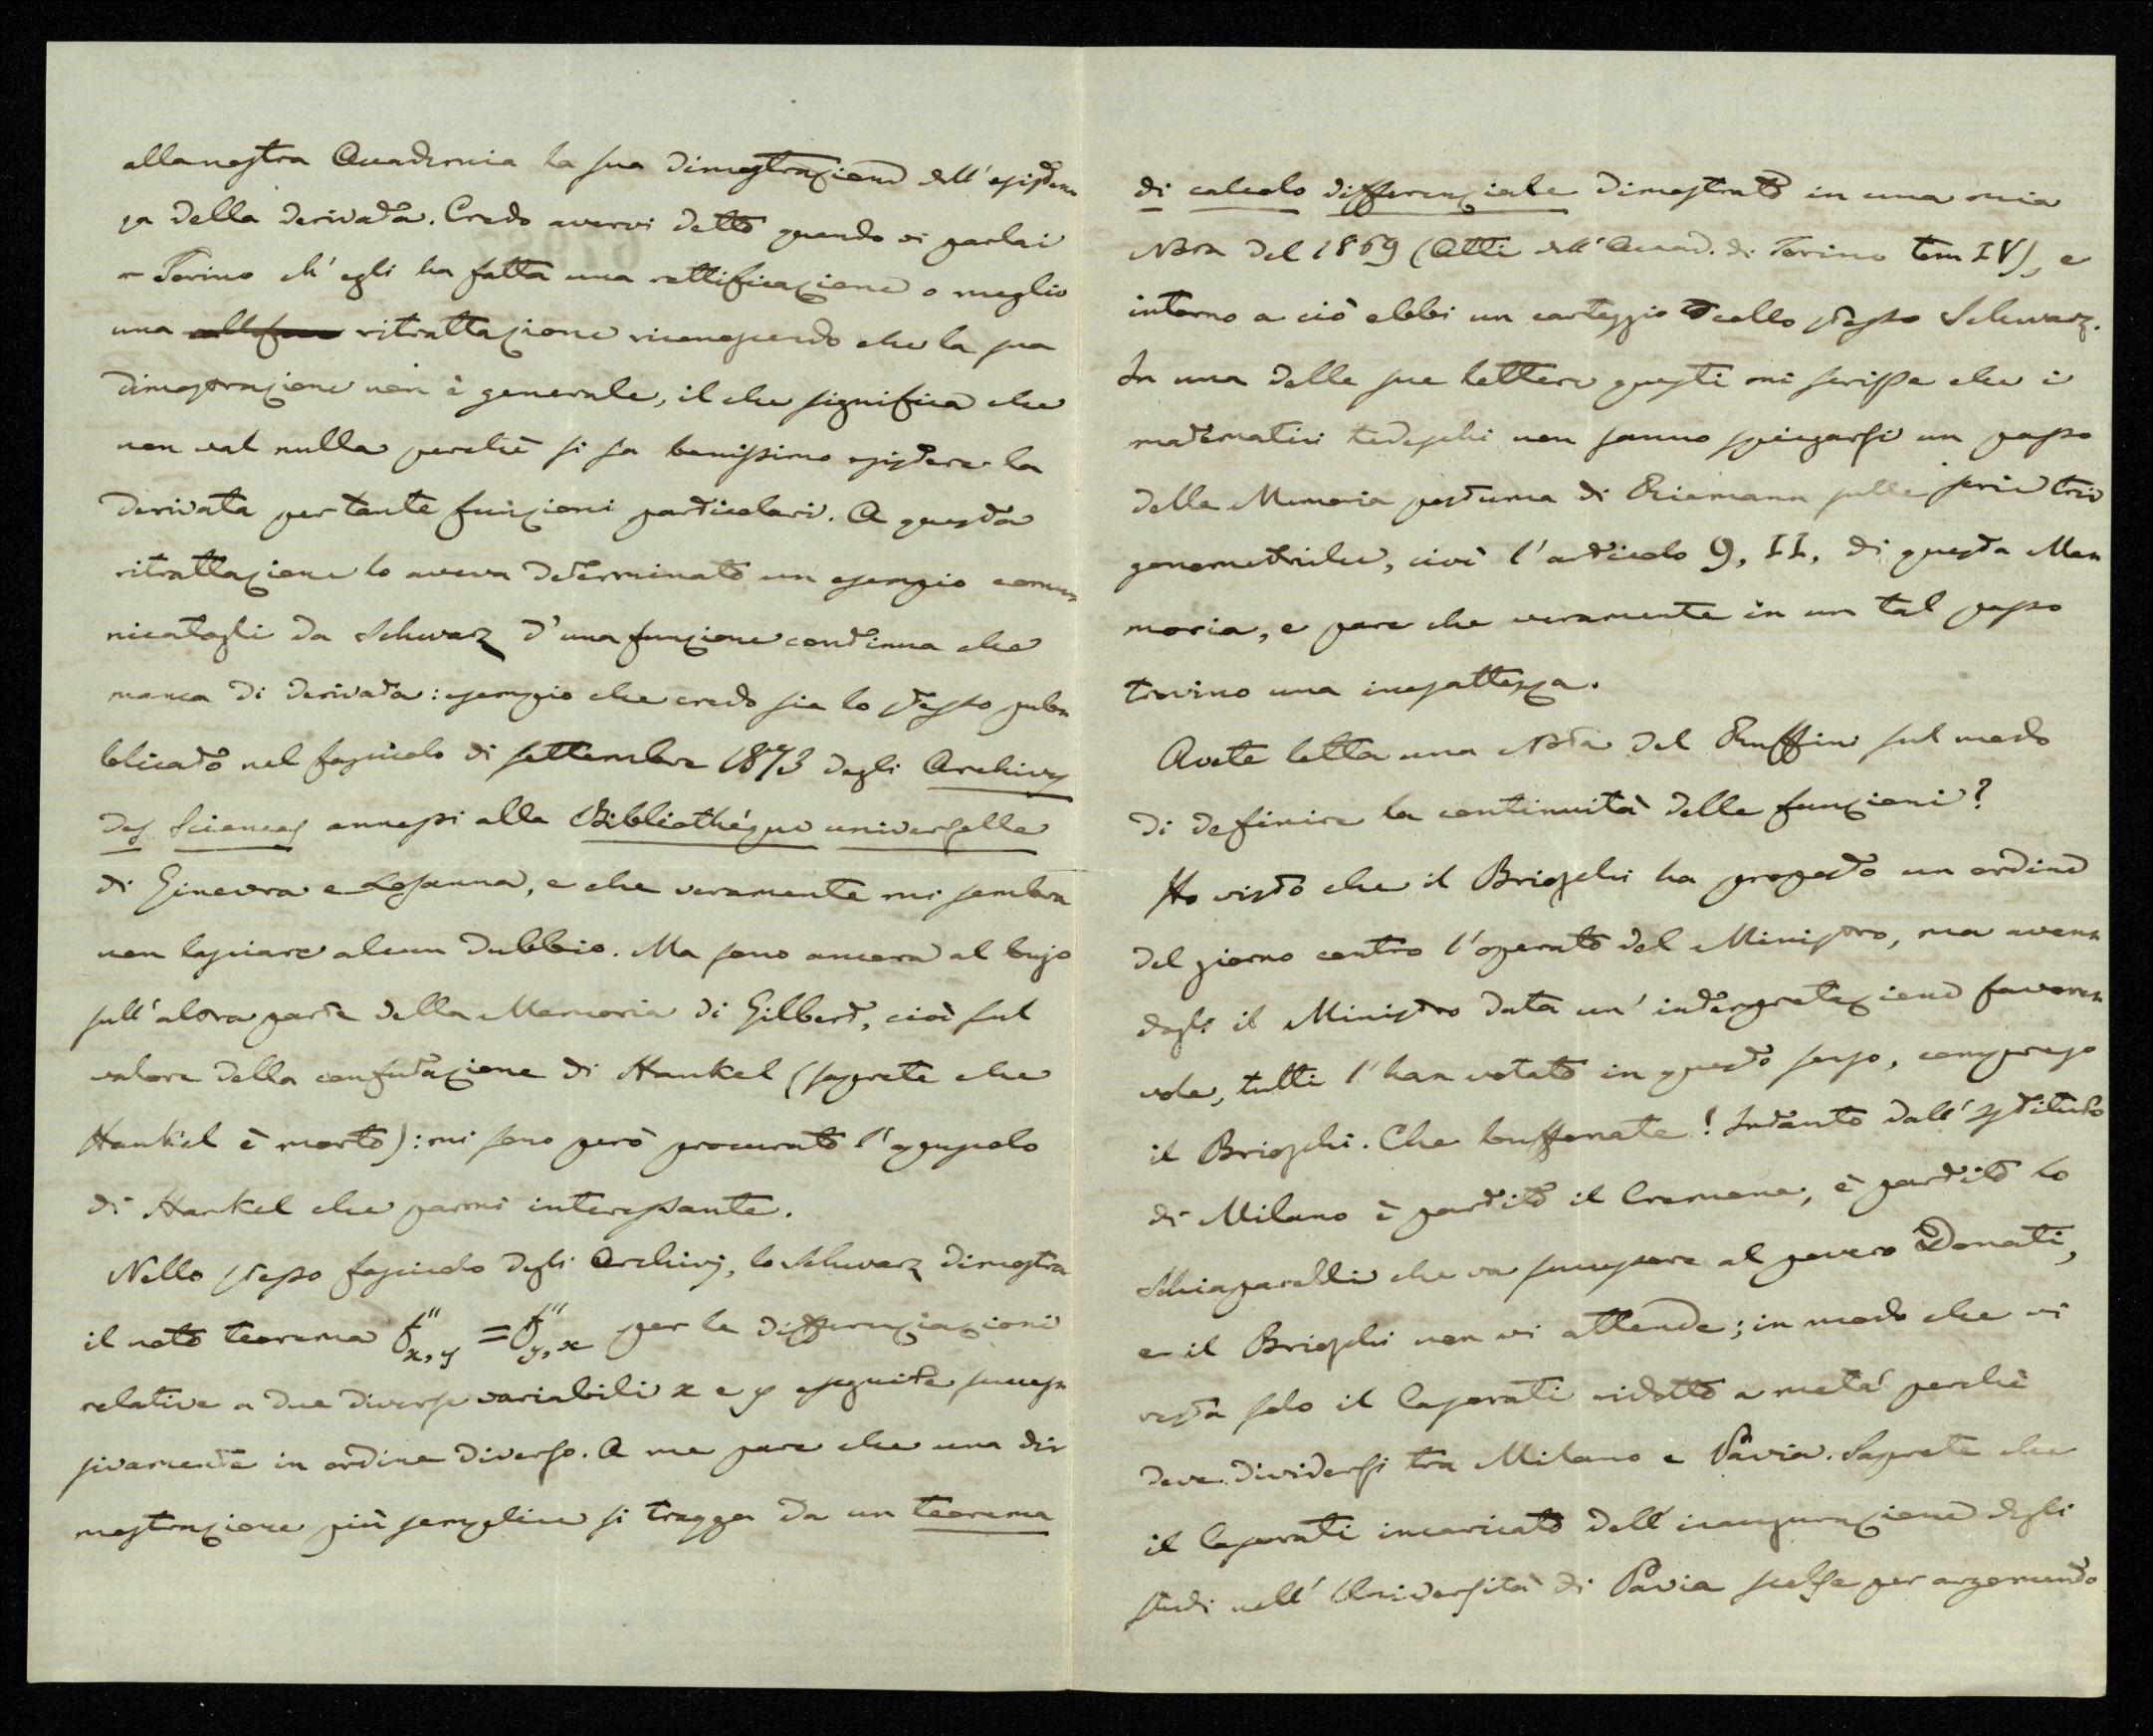 alla nostra Accademia la sua dimostrazione dell'esisten
za della derivata. Credo avervi detto quando vi parlai
a Torino ch'egli ha fatta una rettificazione o meglio
una ritrattazione riconoscendo che la sua
dimostrazione non è generale, il che significa che
non val nulla perchè si sa benissimo esistere la
derivata per tante funzioni particolari. A questa
ritrattazione lo aveva determinato un esempio comu
nicatogli da Schwarz d'una funzione continua che
manca di derivata: esempio che credo sia lo stesso pub
blicato nel fascicolo di settembre 1873 degli Archives
des Sciences annessi alla Bibliothéque universelle
di Ginevra e Losanna, e che veramente mi sembra
non lasciare alcun dubbio. Ma sono ancora al bujo
sull'altra parte della Memoria di Gilbert, cioè sul
valore della confutazione di Hankel (saprete che
Hankel è morto): mi sono però procurato l'opuscolo
di Hankel che parmi interessante.
Nello stesso fascicolo degli Archivj, lo Schwarz dimostra
il noto teorema f''x,y = f''y,x per le differenziazioni
relative a due diverse variabili x e y eseguite succes
sivamente in ordine diverso. A me pare che una di
mostrazione più semplice si tragga da un teorema
di calcolo differenziale dimostrato in una mia
Nota del 1869 (Atti dell'Accad. di Torino tom IV), e
intorno a ciò ebbi un carteggio collo stesso Schwarz.
In una delle sue lettere questi mi scrisse che i
matematici tedeschi non sanno spiegarsi un passo
della Memoria postuma di Riemann sulle serie tri
gonometriche, cioè l'articolo 9, II, di questa Me
moria, e pare che veramente in un tal passo
trovino una inesattezza.
Avete letta una Nota del Ruffini sul modo
di definire la continuità delle funzioni?
Ho visto che il Brioschi ha proposto un ordine
del giorno contro l'operato del Ministro, ma aven
dogli il Ministro data un'interpretazione favore
vole, tutti l'han votato in questo senso, compreso
il Brioschi. Che buffonate! Intanto dall'Istituto
di Milano è partito il Cremona, è partito lo
Schiaparelli che va succedere al povero Donati,
e il Brioschi non vi attende; in modo che vi
resta solo il Casorati ridotto a metà perchè
deve dividersi tra Milano e Pavia. Saprete che
il Casorati incaricato dell'inaugurazione degli
studi nell'Università di Pavia scelse per argomento